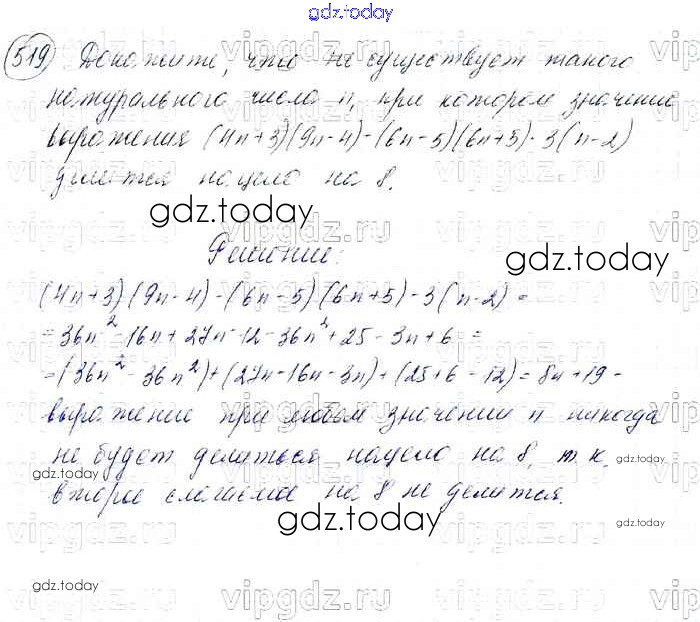 gdz.today
519 Докажите, что не существует такого
натурального числа n, при котором значение
выражения (4n+3)(9n-4)-(6n-5)(6n+5)-3(n-2)
делится нацело на 8.
gdz.today
gdz.today
Решение:
(4n+3)(9n-4)-(6n-5)(6n+5)-3(n-2)=
=36n²-16n+27n-12-36n²+25-3n+6=
=(36n²-36n²)+(27n-16n-3n)+(25+6-12)=8n+19-
выражение при любом значении n никогда
не будет делиться нацело на 8, т.к.
gdz.today
gdz.today
второе слагаемое на 8 не делится.
gdz.today
gdz.today
gdz.today
vipgdz.ru